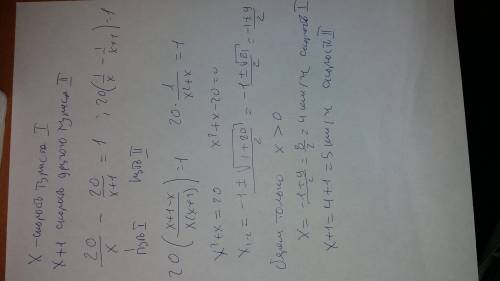 x - скорость туриста I
x+1 скорость другого туриста II
20/x - 20/x+1 = 1 ; 20(1/x - 1/x+1) = 1
путь I путь II
20(x+1-x/x(x+1)) = 1 20·1/x²+x = 1
x²+x=20 x²+x-20=0
x₁,₂ = -1±√1+20·/2 = -1±√81/2 = -1±9/2
только x>0
x = -1+9/2 = 8/2 = 4 км/ч скорость I
x+1=4+1=5 км/ч скорость II